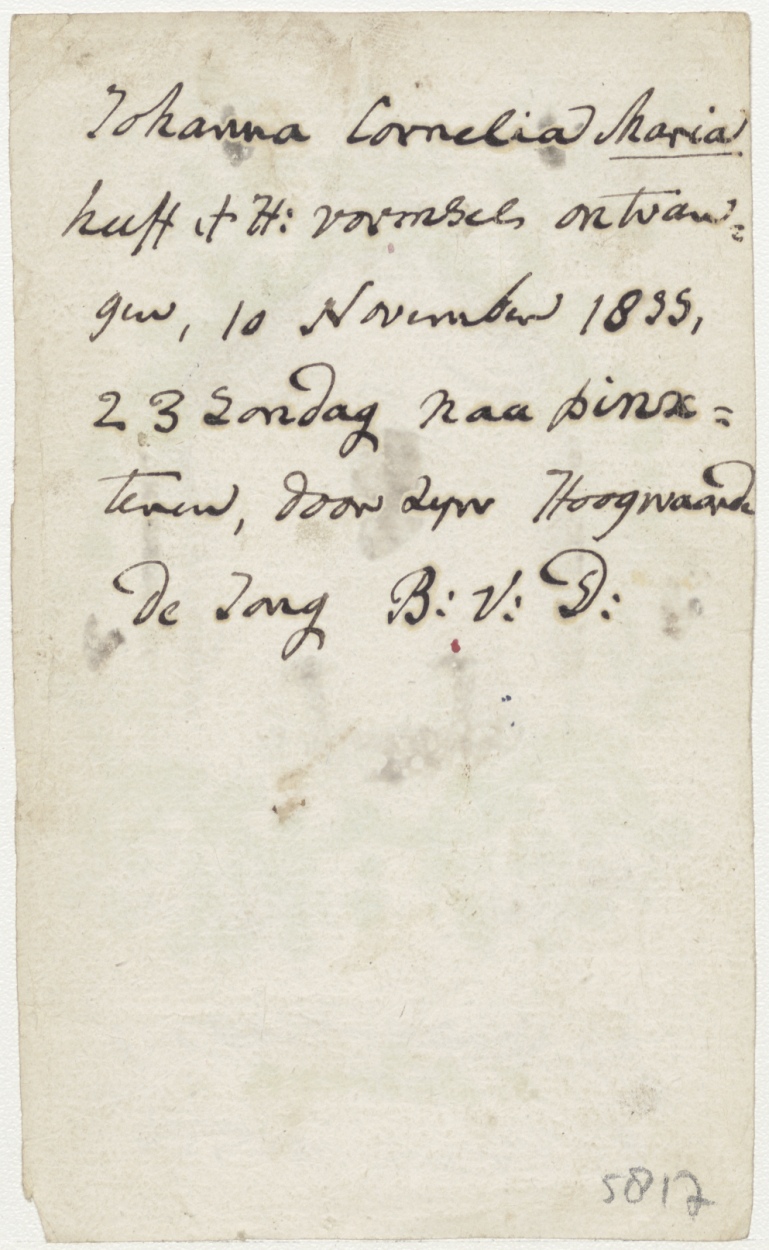 Johanna Cornelia Maria
heeft 't H: vormsels ontvan=
gen, 10 November 1833,
23 Zondag naa pinx=
teren, door zijn Hoogwaarde
De Jong B: V: D:
5817